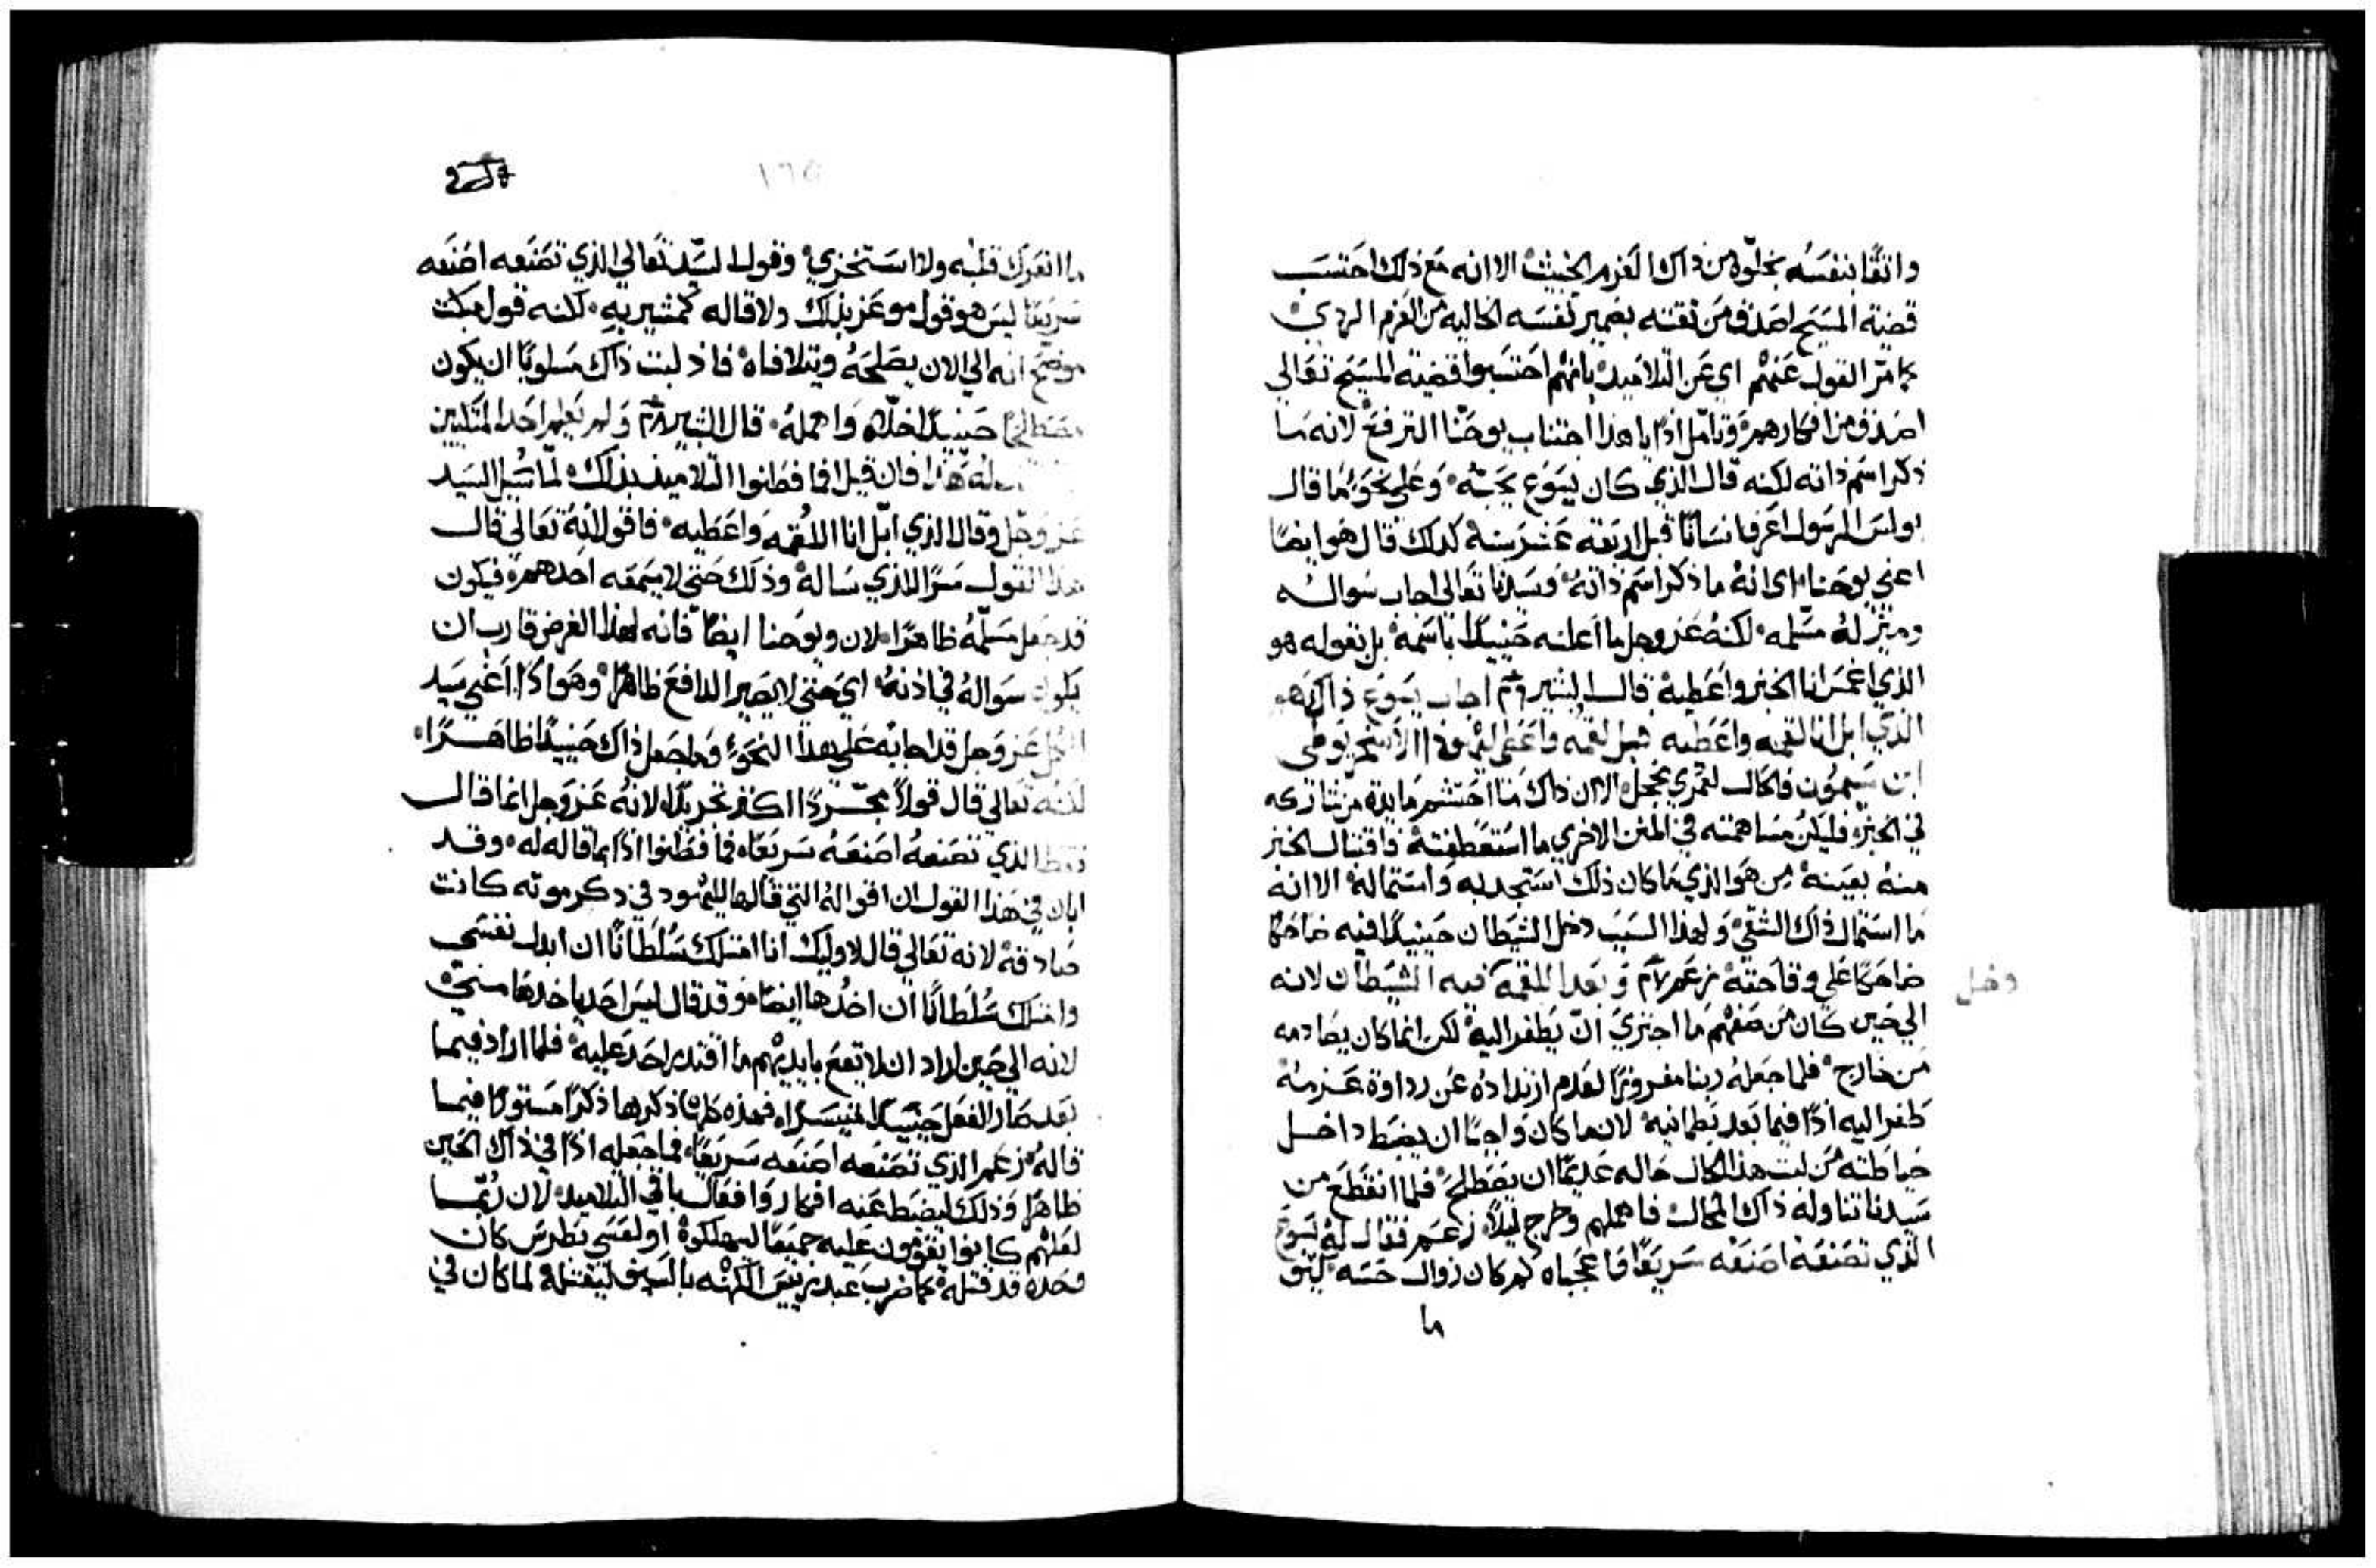 واثقًا بنفسه بخلوه من ذاك العزم الخبيث الا انه مع ذلك احتسب
قضية المسيح اصدق من ثقته بضمير نفسه الخاليه من العزم الردي
كما مرّ القول عنهم اي عن التلاميذ بانهم احتسبوا قضية المسيح تعالى
اصدق من افكارهم وتامّل اذًا يا هذا اجتناب يوحنّا الترفع لانه ما
ذكر اسم ذاته لكنه قال الذي كان يسوع يحبّه وعلى نحو ما قال
بولس الرسول اعرف انسانًا قبل اربعة عشر سنة كذلك قال هو ايضًا
اعني يوحنا اي انه ما ذكر اسم ذاته وسيدنا تعالى اجاب سواله
وميّز له مسلمه لكنه عز وجل ما أعلنه حينيذًا باسمه بل بقوله هو
الذي اغمس انا الخبز واعطيه قال البشير اجاب يسوع ذاك هو
الذي ابل انا لقمه واعطيه فبل لقمه واعطى ليهوذا الاسخريوطي
ابن سيمون فالحال لعمري مخجل الا ان ذاك ما احتشم مايدة من شاركه
في الخبز فليكن مساهمته في المتن الاخرى ما استعطفته فاقتبال الخبز
منه بعينه من هو الذي ما كان ذلك استجد به واستماله الا انه
ما استمال ذاك الشقي ولهذا السبب دخل الشيطان حينيذًا فيه ضاحكا
ضاحكا على وقاحته زعم وبعد اللقمه فيه الشيطان لانه
دخل
الى حين كان من صفهم ما اجتري ان يطفر اليه لكن انما كان يصادمه
من خارج فلما جعله ربنا مفروزًا لعدم ارتداده عن رداوة عزمه
طفر اليه اذًا فيما بعد بطمانيه لان ما كان واجبًا ان يضبط داخل
حياطته من لبث هذا الحال حاله عديمًا ان يصطلح فلما انقطع من
سيدنا تناوله ذاك المحال فاهملهم وخرج ليلًا زعم فقال له يسوع
الذي تصنعه اصنعه سريعًا فا عجباه كم كان زوال حسه كيف
ما
١٦٥
ما انعرك قلبه ولا استخزي وقول السيد تعالى الذي تصنعه اصنعه
سريعًا ليس هو قول موعز بذلك ولا قاله كمشير به لكنه قول مبكت
موضح انه الى الان يصلحه ويتلافاه فاذ لبث ذاك مسلوبًا ان يكون
مصطلحًا حينيذًا خلاه واهمله قال البشير ولم يعلم احد المتكيين
له هذا فان قيل افما فطنوا التلاميذ بذلك لمّا سُيل السيد
عز وجل وقال الذي ابل انا اللقمه واعطيه فاقول لانه تعالى قال
هذا القول سرًا للذي ساله وذلك حتى لا يسمعه احدهم فيكون
قد جعل مسلّمه ظاهرًا الان ويوحنا ايضًا فانه لهذا الغرض قارب ان
يكون سواله في اذنه اي حتى لا يصير الدافع ظاهرًا وهو اذًا اعني سيد
الكل عز وجل قد اجابه على هذا النحو وما جعل ذاك حينيذًا ظاهرًا
لكنه تعالى قال قولًا مجردًا اكثر تحريكًا لانه عز وجل انما قال
فقط الذي تصنعه اصنعه سريعًا فما فطنوا اذًا بما قاله له وقد
ابان في هذا القول ان اقواله التي قالها لليهود في ذكر موته كانت
صادقه لانه تعالى قال لاوليك انا امتلك سلطانًا ان ابدل نفسي
وامتلك سلطانًا ان اخذها ايضًا وقد قال ليس احد ياخذها مني
لانه الى حين اراد ان لا تقع بايديهم ما اقتدر احد عليه فلما اراد فيما
بعد صار الفعل حينيذًا متيسرًا فهذه كلها ذكرها ذكرًا مستورًا فيما
قاله زعم الذي تصنعه اصنعه سريعًا فما جعله اذًا في ذاك الحين
ظاهرًا وذلك ليضبط عنه افكار وافعال باقي التلاميذ لان ربما
لعلهم كانوا يقومون عليه جميعًا ليهلكوه او لعسي بطرس كان
وحده قد قتله كما ضرب عبد رييس الكهنه بالسيف ليقتله لما كان في